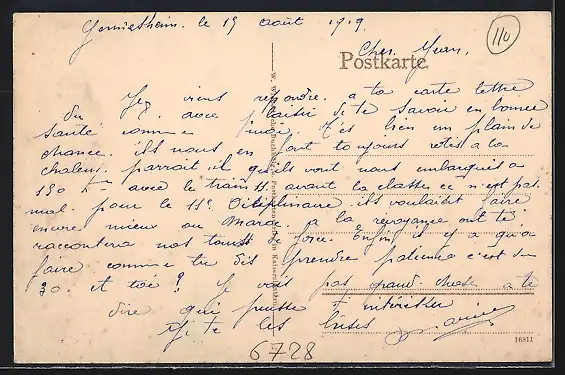 Germersheim. le 19 août 1919
110
Cher Jean,
Postkarte.
Je viens répondre. a ta carte lettre
du 7. avec plaisir de te savoir en bonne
santé comme moi. T'es bien un plain de
chance. ils nous en font toujours rotis a la
chaleur. parrait il qu'ils vont nous embarqués a
150 Km avec le train 11. avant la classe ce n'est pas
mal pour le 11e Disiplinaire. ils voulaibt faire
encore mieux au Maroc. a la revoyance ont te
racontera nos tours de force. Enfin il y a qu'a
faire comme tu dis prendre patience c'est du
30. et toi? Je vois pas grand chose a te
dire qui puisse t'intérésser
Je te les bises
16811
6728